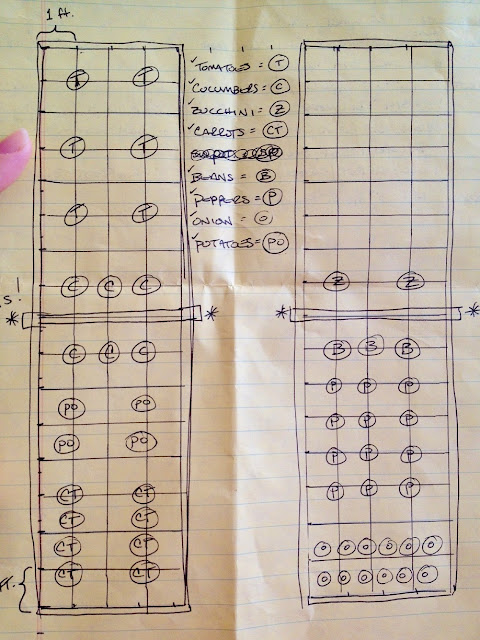 1 ft.
T T
T T
T T
C C C
s!
* *
C C C
PO PO
PO PO
CT CT
CT CT
CT CT
CT CT
ft.
✓TOMATOES = T
✓CUCUMBERS = C
✓ZUCCHINI = Z
✓CARROTS = CT
✓BEANS = B
✓PEPPERS = P
✓ONION = O
✓POTATOES = PO
Z Z
* *
B B B
P P P
P P P
P P P
P P P
O O O O O O
O O O O O O